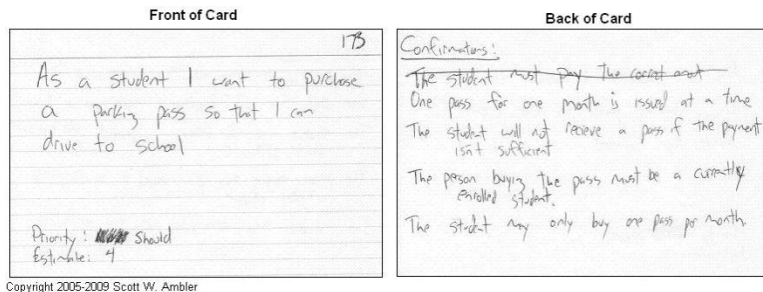 Front of Card
173
As a student I want to purchase
a parking pass so that I can
drive to school
Priority: Should
Estimate: 4
Back of Card
Confirmations:
The student must pay the correct amt
One pass for one month is issued at a time
The student will not recieve a pass if the payment
isn't sufficient
The person buying the pass must be a currently
enrolled student.
The student may only buy one pass per month.
Copyright 2005-2009 Scott W. Ambler